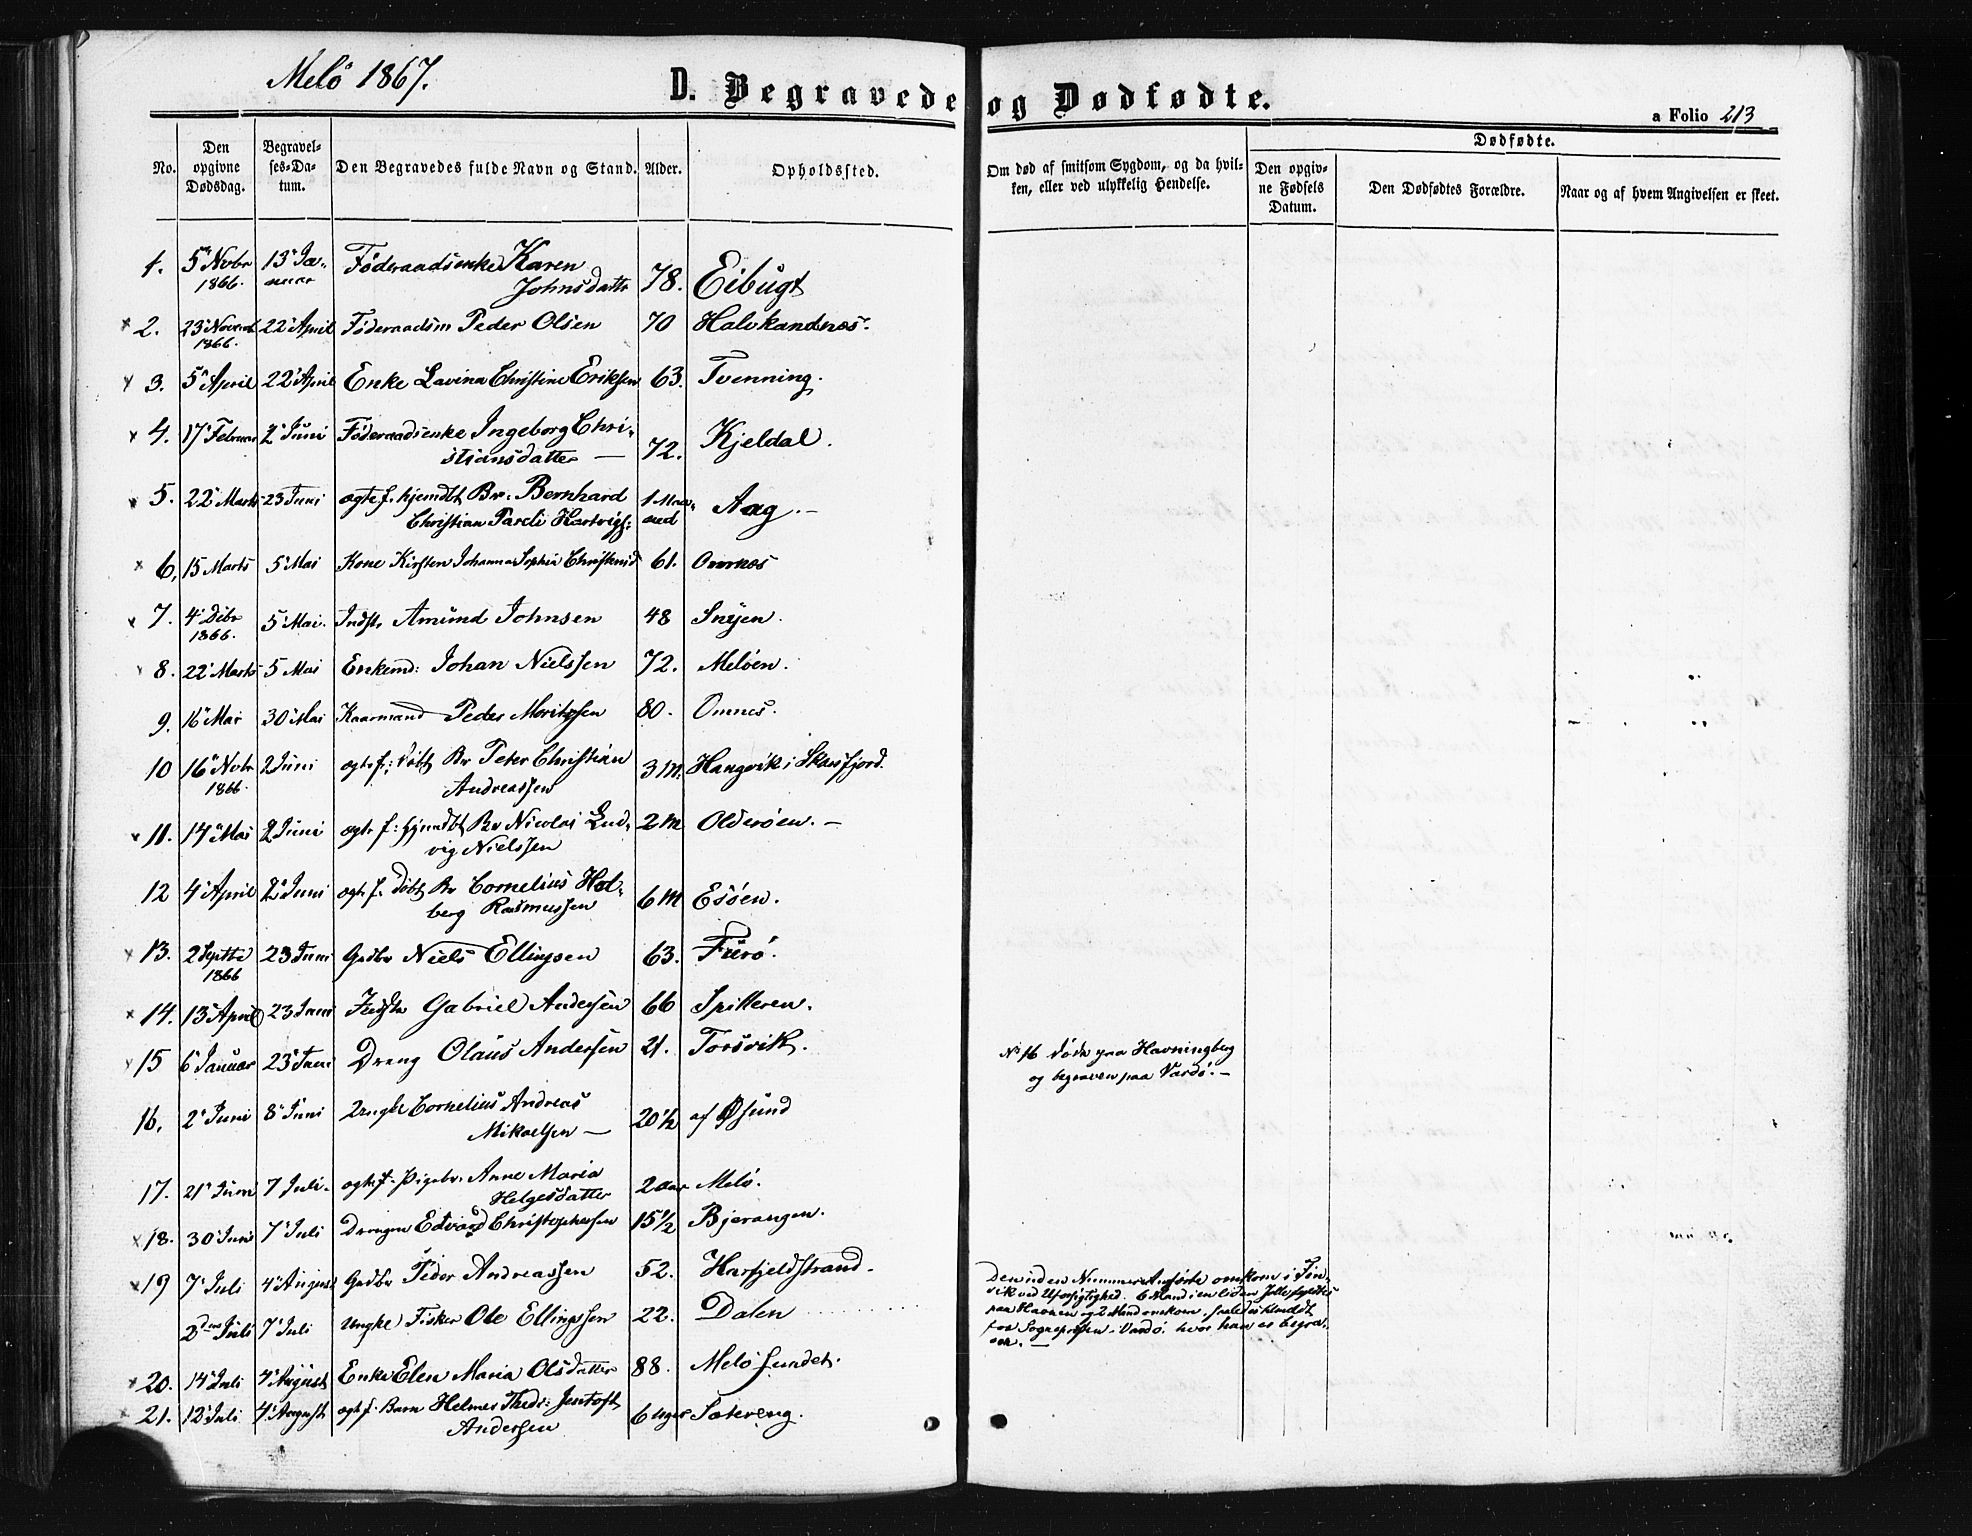 Melö 1867.
D. Begravede og Dødfødte.
a Folio 213
No.
Den opgivne Dødsdag.
Begravelses-Datum.
Den Begravedes fulde Navn og Stand.
Alder.
Opholdssted.
Om død af smitsom Sygdom, og da hvilken, eller ved ulykkelig Hendelse.
Dødfødte.
Den opgivne Fødsels Datum.
Den Dødfødtes Forældre.
Naar og af hvem Angivelsen er skeet.
1. 5 Novbr 1866. 13 Januar Föderaadsenke Karen Johnsdatter 78. Eibugt
2. 23 Novemb 1866. 22 April Föderaadsm Peder Olsen 70 Halvkandnæs.
3. 5 April 22 April Enke Lavina Christine Eriksen 63. Tvenning.
4. 17 Februar 2 Juni Föderaadsenke Ingeborg Christiansdatter — 72. Kjeldal.
5. 22 Marts 23 Juni ægte f. hjemdbt Br: Bernhard Christian Hartvigs: 1 Maaned Aag. –
6, 15 Marts 5 Mai Kone Kirsten Johanna Sophia 61. Ornæs
7. 4 Debr 1866. 5 Mai. Indst. Amund Johnsen 48 Snejen.
8. 22 Marts 5 Mai Enkemd: Johan Nielssen 72. Melöen.
9. 16 Mai 30 Mai Kaarmand Peder Moritzsen 80. Omnes.
10 16 Novbr 1866. 2 Juni ægte f: döbt Br Peter Christian Andreassen 3 M. Hangvik i
11. 14 Mai 2 Juni ægte f: hjemdbt Br Nicolai Ludvig Nielssen 2 M Olderöen. –
12 4 April 2 Juni ægte f. döbt Br Cornelius Holberg Rasmussen 6 M Esöen.
13. 2 Septbr 1866 23 Juni Gadbr Niels Ellingsen 63. Fuerö.
14. 13 April 23 Juni Gabriel Andersen 66 Spilderen.
15 6 Januar 23 Juni Dreng Olaus Andersen 21. Torsvik.
No 16 döde paa Havningberg
og begraven paa Vardö. –
16. 2 Juni 8 Juni Ungkl Cornelius Andreas Mikaelsen — 20 1/2 af Øsund
17. 21 Juni 7 Juli. ægte f. Pigebr. Anne Maria Helgesdatter 2 aar Melö.
18. 30 Juni 7 Juli Drengen Edvard Christophersen 15 1/2 Bjerangen.
19 7 Juli 4 August Gadbr Peder Andreassen 52. Harfjeldstrand.
2den Juli 7 Juli Ungkl Fisker Ole Ellingsen 22. Dalen
Den uden Nummer Anförte omkom i
vik ved Uforsigtighed. 6 Mand i en liden Jolle
paa Havnen og 2 Mand omkom,
fra Sognepresten i Vardö, hvor han er begraven. –
20. 14 Juli 4 August Enke Elen Maria Olsdatter 88. Melösundet.
21. 12 Juli 4 August ægte f. Barn Helmer Thedr: Jentoft Andersen 6 Uger Sætereng.